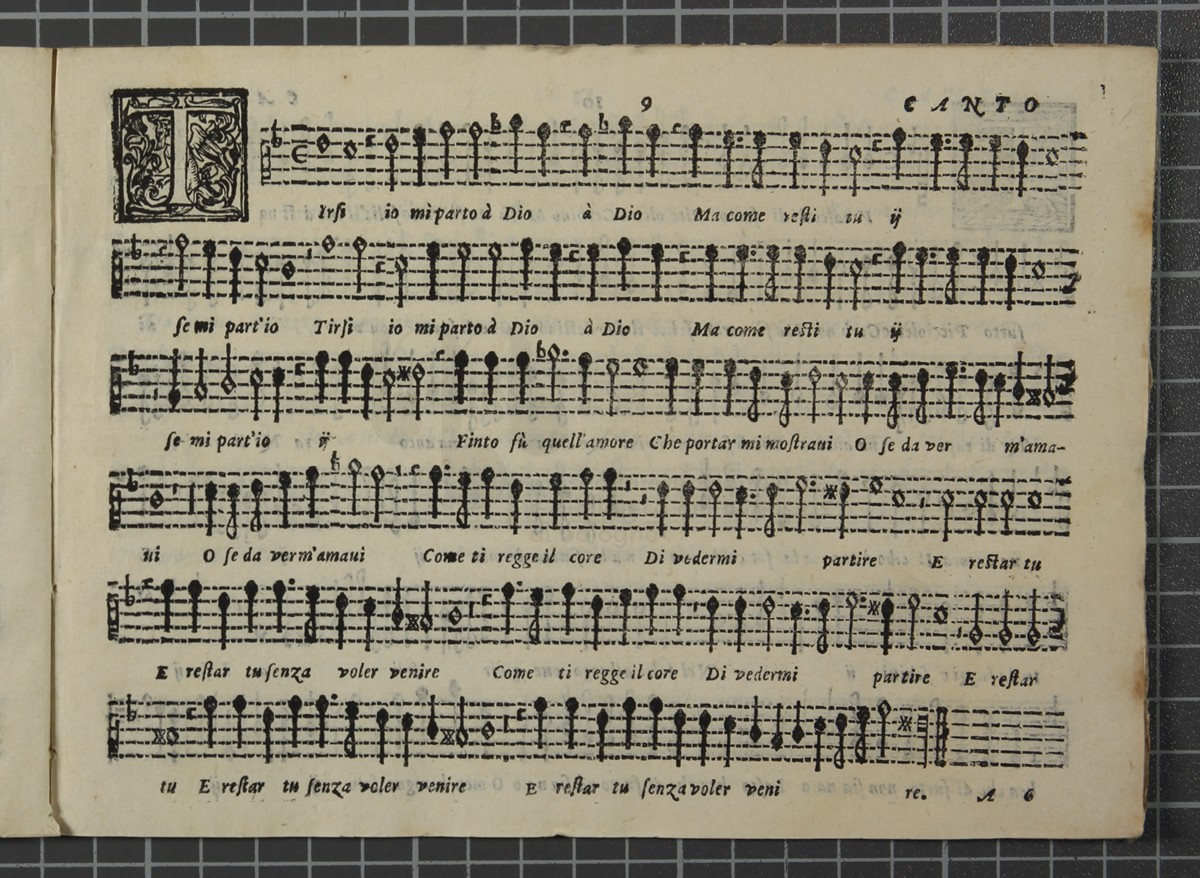 9 CANTO
TIrsi io mi parto à Dio à Dio Ma come resti tu ij
se mi part'io Tirsi io mi parto à Dio à Dio Ma come resti tu ij
se mi part'io ij Finto fù quell'amore Che portar mi mostraui O se da ver m'ama-
ui O se da ver m'amaui Come ti regge il core Di vedermi partire E restar tu
E restar tu senza voler venire Come ti regge il core Di vedermi partire E restar
tu E restar tu senza voler venire E restar tu senza voler veni re.
A 6